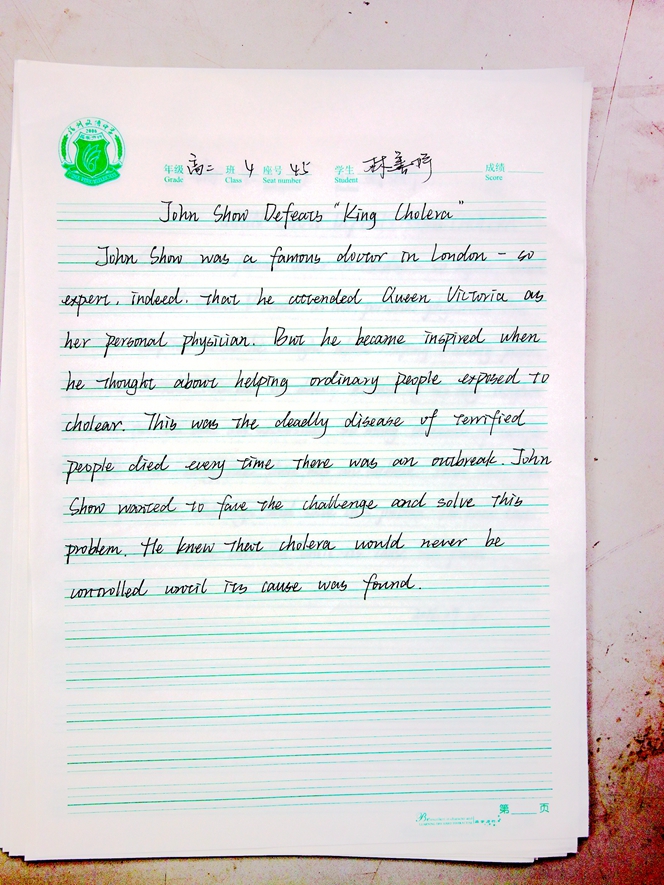 年级 高二 班 4 座号 45 学生 林善 成绩
Grade Class Seat number Student Score
John Show Defeats "King Cholera"
John Show was a famous doctor in London - so
expert, indeed, that he attended Queen Victoria as
her personal physician. But he became inspired when
he thought about helping ordinary people exposed to
cholear. This was the deadly disease of terrified
people died every time there was an outbreak. John
Show wanted to face the challenge and solve this
problem. He knew that cholera would never be
controlled until its cause was found.
第 页